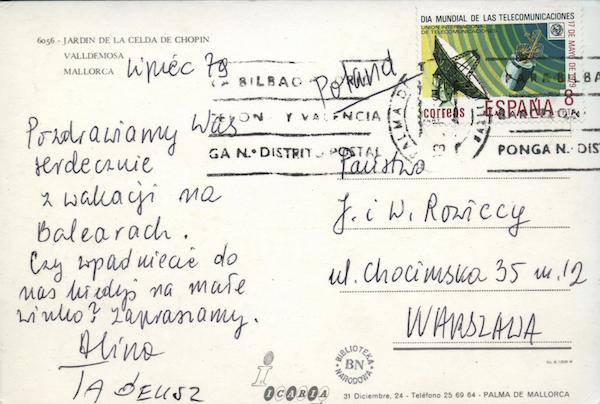 6056 - JARDIN DE LA CELDA DE CHOPIN
VALLDEMOSA
MALLORCA
lipiec 79
Poland
DIA MUNDIAL DE LAS TELECOMUNICACIONES
UNION INTERNACIONAL
DE TELECOMUNICACIONES
17 DE MAYO DE 1979
correos
ESPAÑA
8
BILBAO
Y VALENCIA
GA N.º DISTRITO POSTAL
PALMA DE
PARA BILBAO
BARCELONA
PONGA N.º DIST
Pozdrawiamy Was
serdecznie
z wakacji na
Balearach.
Czy wpadniecie do
nas kiedyś na małe
winko? Zapraszamy.
Alina
TADEUSZ
Państwo
J. i W. Rowiccy
ul. Chocimska 35 m. 12
WARSZAWA
BIBLIOTEKA
BN
NARODOWA
ICARIA
31 Diciembre, 24 - Teléfono 25 69 64 - PALMA DE MALLORCA